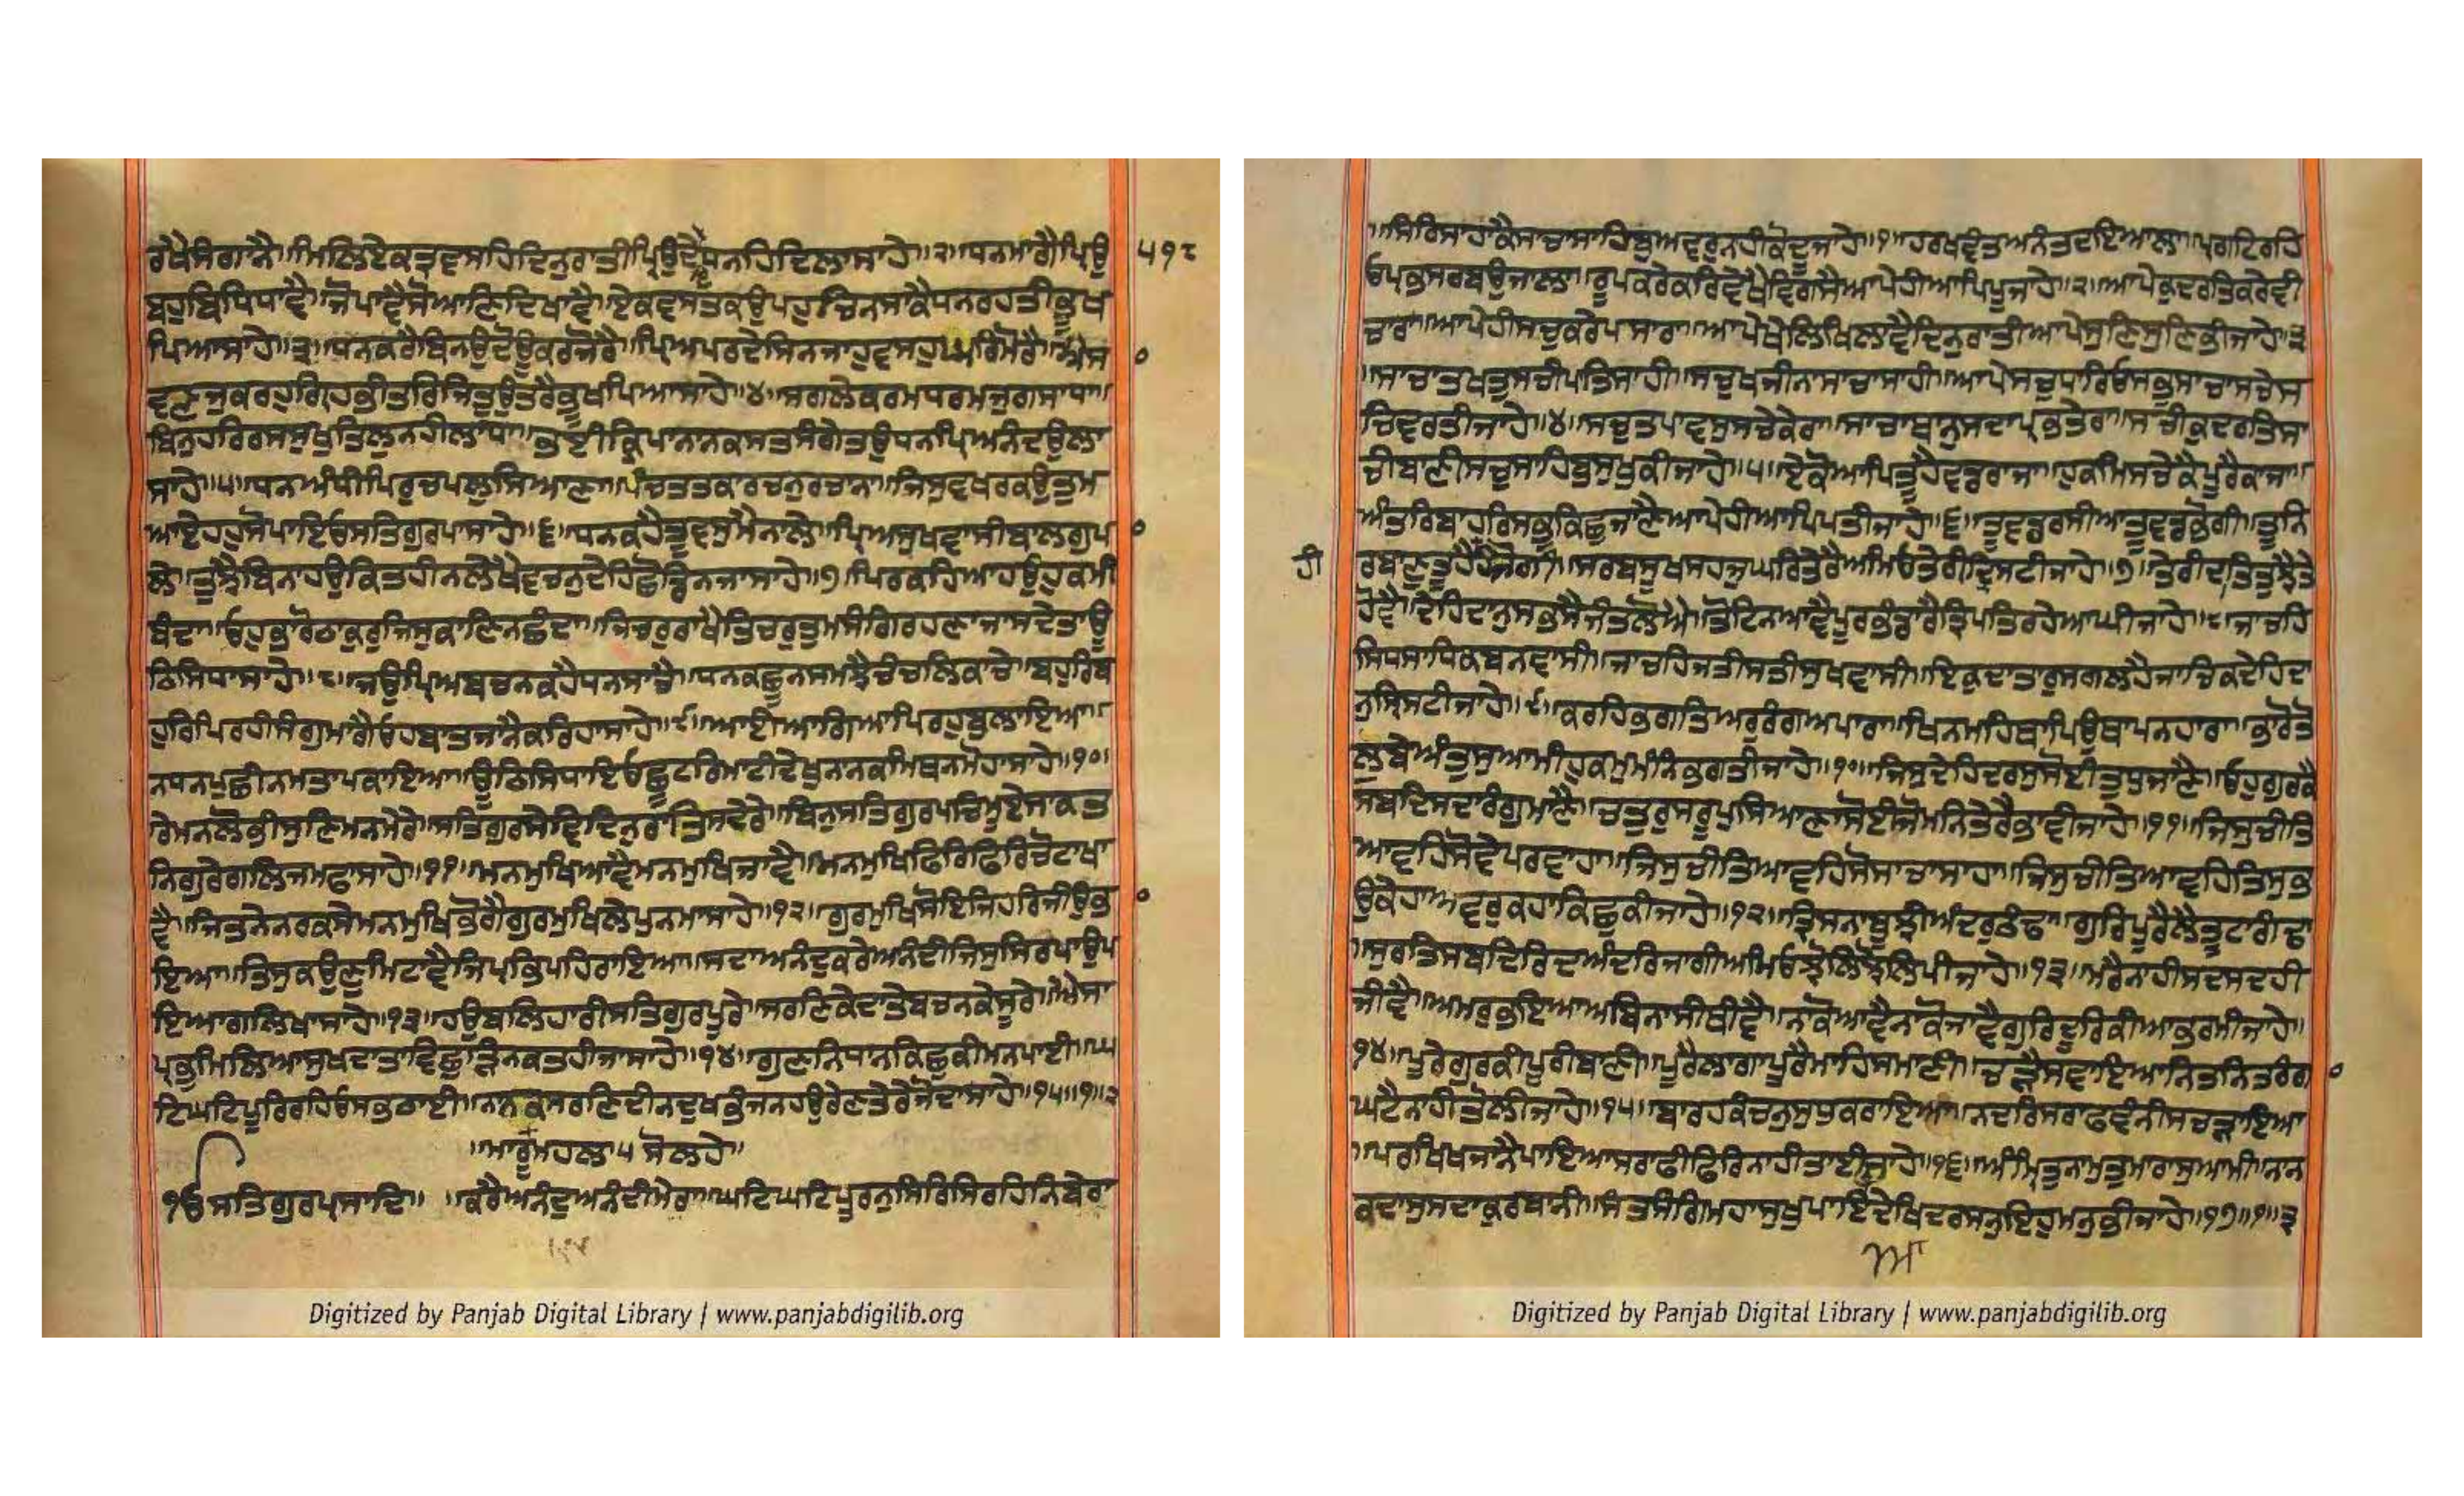 ਰਖੈਸੰਗਾਨੈ॥ਮਿਲਿਏਕਤ੍ਰਵਸਹਿਦਿਨੁਰਾਤੀਪ੍ਰਿਉਦੇਧਨਹਿਦਿਲਾਸਾਹੇ॥੨॥ਧਨਮਾਗੈਪ੍ਰਿਉ
੫੧੮
ਬਹੁਬਿਧਿਧਾਵੈ॥ਜੋਪਾਵੈਸੋਆਣਿਦਿਖਾਵੈ॥ਏਕਵਸਤਕਉਪਹੁਚਿਨਸਾਕੈਧਨਰਹਤੀਭੂਖ
ਪਿਆਸਾਹੇ॥੩॥ਧਨਕਰੈਬਿਨਉਦੋਊਕਰਜੋਰੈ॥ਪ੍ਰਿਅਪਰਦੇਸਿਨਜਾਹੁਵਸਹੁਘਰਿਮੋਰੈ॥ਐਸਾ
ਵਣਜੁਕਰਹੁਗ੍ਰਿਹਭੀਤਰਿਜਿਤੁਉਤਰੈਭੂਖਪਿਆਸਾਹੇ॥੪॥ਸਗਲੇਕਰਮਧਰਮਜੁਗਸਾਧਾ॥
ਬਿਨੁਹਰਿਰਸਸੁਖੁਤਿਲੁਨਹੀਲਾਧਾ॥ਭਈਕ੍ਰਿਪਾਨਾਨਕਸਤਸੰਗੇਤਉਧਨਪਿਅਨੰਦਉਲਾ
ਸਾਹੇ॥੫॥ਧਨਅੰਧੀਪਿਰੁਚਪਲੁਸਿਆਣਾ॥ਪੰਚਤਤਕਾਰਚਨੁਰਚਾਨਾ॥ਜਿਸੁਵਖਰਕਉਤੁਮ
ਆਏਹਹੁਸੋਪਾਇਓਸਤਿਗੁਰਪਾਸਾਹੇ॥੬॥ਧਨਕਹੈਤੂਵਸੁਮੈਨਾਲੇ॥ਪ੍ਰਿਅਸੁਖਵਾਸੀਬਾਲਗੁਪਾ
ਲੇ॥ਤੁਝੈਬਿਨਾਹਉਕਿਤਹੀਨਲੇਖੈਵਚਨੁਦੇਹਿਛੋਡਿਨਜਾਸਾਹੇ॥੭॥ਪਿਰਕਹਿਆਹਉਹੁਕਮੀ
ਬੰਦਾ॥ਓਹੁਭਾਰੋਠਾਕੁਰੁਜਿਸੁਕਾਣਿਨਛੰਦਾ॥ਜਿਚਰੁਰਾਖੈਤਿਚਰੁਤੁਮਸੰਗਿਰਹਣਾਜਾਸਦੇਤਾਊ
ਠਿਸਿਧਾਸਾਹੇ॥੮॥ਜਉਪ੍ਰਿਅਬਚਨਕਹੈਧਨਸਾਚੇ॥ਧਨਕਛੂਨਸਮਝੈਚੰਚਲਿਕਾਚੇ॥ਬਹੁਰਿਬ
ਹੁਰਿਪਿਰਹੀਸੰਗੁਮਾਗੈਓਹਬਾਤਜਾਨੈਕਰਿਹਾਸਾਹੇ॥੯॥ਆਈਆਗਿਆਪਿਰਹੁਬੁਲਾਇਆ॥
ਨਧਨਪੁਛੀਨਮਤਾਪਕਾਇਆ॥ਊਠਿਸਿਧਾਇਓਛੂਟਰਿਮਾਟੀਦੇਖੁਨਾਨਕਮਿਥਨਮੋਹਾਸਾਹੇ॥੧੦॥
ਰੇਮਨਲੋਭੀਸੁਣਿਮਨਮੇਰੇ॥ਸਤਿਗੁਰਸੇਵਿਦਿਨੁਰਾਤਿਸਦੇਰੇ॥ਬਿਨੁਸਤਿਗੁਰਪਚਿਮੂਏਸਾਕਤ
ਨਿਗੁਰੇਗਲਿਜਮਫਾਸਾਹੇ॥੧੧॥ਮਨਮੁਖਿਆਵੈਮਨਮੁਖਿਜਾਵੈ॥ਮਨਮੁਖਿਫਿਰਿਫਿਰਿਚੋਟਾਖਾ
ਵੈ॥ਜਿਤਨੇਨਰਕਸੇਮਨਮੁਖਿਭੋਗੈਗੁਰਮੁਖਿਲੇਪੁਨਮਾਸਾਹੇ॥੧੨॥ਗੁਰਮੁਖਿਸੋਇਜਿਹਰਿਜੀਉਭਾ
ਇਆ॥ਤਿਸੁਕਉਣੁਮਿਟਾਵੈਜਿਪ੍ਰਭਿਪਹਿਰਾਇਆ॥ਸਦਾਅਨੰਦੁਕਰੇਆਨੰਦੀਜਿਸੁਸਿਰਪਾਉਪ
ਇਆਗਲਿਖਾਸਾਹੇ॥੧੩॥ਹਉਬਲਿਹਾਰੀਸਤਿਗੁਰਪੂਰੇ॥ਸਰਣਿਕੇਦਾਤੇਬਚਨਕੇਸੂਰੇ॥ਐਸਾ
ਪ੍ਰਭੁਮਿਲਿਆਸੁਖਦਾਤਾਵਿਛੁੜਿਨਕਤਹੀਜਾਸਾਹੇ॥੧੪॥ਗੁਣਨਿਧਾਨਕਿਛੁਕੀਮਨਪਾਈ॥ਘ
ਟਿਘਟਿਪੂਰਿਰਹਿਓਸਭਠਾਈ॥ਨਾਨਕਸਰਣਿਦੀਨਦੁਖਭੰਜਨਹਉਰੇਣਤੇਰੇਜੋਦਾਸਾਹੇ॥੧੫॥੧॥੨
॥ਮਾਰੂਮਹਲਾ੫ਸੋਲਹੇ॥
ੴਸਤਿਗੁਰਪ੍ਰਸਾਦਿ॥ ॥ਕਰੈਅਨੰਦੁਅਨੰਦੀਮੇਰਾ॥ਘਟਿਘਟਿਪੂਰਨੁਸਿਰਿਸਿਰਹਿਨਿਬੇਰਾ
Digitized by Panjab Digital Library | www.panjabdigilib.org
॥ਸਿਰਿਸਾਹਾਕੈਸਾਚਾਸਾਹਿਬੁਅਵਰੁਨਹੀਕੋਦੂਜਾਹੇ॥੧॥ਹਰਖਵੰਤਅਨੰਤਦਇਆਲਾ॥ਪ੍ਰਗਟਿਰਹਿ
ਓਪ੍ਰਭੁਸਰਬਉਜਾਲਾ॥ਰੂਪਕਰੇਕਰਿਵੇਖੈਵਿਗਸੈਆਪੇਹੀਆਪਿਪੂਜਾਹੇ॥੨॥ਆਪੇਕੁਦਰਤਿਕਰੇਵੀ
ਚਾਰਾ॥ਆਪੇਹੀਸਚੁਕਰੇਪਸਾਰਾ॥ਆਪੇਖੇਲਿਖਿਲਾਵੈਦਿਨੁਰਾਤੀਆਪੇਸੁਣਿਸੁਣਿਭੀਜਾਹੇ॥੩
॥ਸਾਚਾਤਖਤੁਸਚੀਪਾਤਿਸਾਹੀ॥ਸਚੁਖਜੀਨਾਸਾਚਾਸਾਹੀ॥ਆਪੇਸਚੁਧਾਰਿਓਸਭੁਸਾਚਾਸਚੇਸ
ਚਿਵਰਤੀਜਾਹੇ॥੪॥ਸਚੁਤਪਾਵਸੁਸਚੇਕੇਰਾ॥ਸਾਚਾਥਾਨੁਸਦਾਪ੍ਰਭਤੇਰਾ॥ਸਚੀਕੁਦਰਤਿਸ
ਚੀਬਾਣੀਸਚੁਸਾਹਿਬੁਸੁਖੁਕੀਜਾਹੇ॥੫॥ਏਕੋਆਪਿਤੂਹੈਵਡਰਾਜਾ॥ਹੁਕਮਿਸਚੇਕੈਪੂਰੈਕਾਜਾ॥
ਅੰਤਰਿਬਾਹਰਿਸਭੁਕਿਛੁਜਾਣੈਆਪੇਹੀਆਪਿਪਤੀਜਾਹੇ॥੬॥ਤੂਵਡਰਸੀਆਤੂਵਡਭੋਗੀ॥ਤੂਨਿ
ਹੀ
ਰਬਾਣੁਤੂਹੈਹੈਜੋਗੀ॥ਸਰਬਸੂਖਸਹਜੁਘਰਿਤੇਰੈਅਮਿਓਤੇਰੀਦ੍ਰਿਸਟੀਜਾਹੇ॥੭॥ਤੇਰੀਦਾਤਿਤੁਝੈਤੇ
ਹੋਵੈ॥ਦੇਹਿਦਾਨੁਸਭਸੈਜੰਤਲੋਐ॥ਤੋਟਿਨਆਵੈਪੂਰਭੰਡਾਰੈਤ੍ਰਿਪਤਿਰਹੇਆਘੀਜਾਹੇ॥੮॥ਜਾਚਹਿ
ਸਿਧਸਾਧਿਕਬਨਵਾਸੀ॥ਜਾਚਹਿਜਤੀਸਤੀਸੁਖਵਾਸੀ॥ਇਕੁਦਾਤਾਰੁਸਗਲਹੈਜਾਚਿਕਦੇਹਿਦਾ
ਨੁਸ੍ਰਿਸਟੀਜਾਹੇ॥੯॥ਕਰਹਿਭਗਤਿਅਰੁਰੰਗਅਪਾਰਾ॥ਖਿਨਮਹਿਥਾਪਿਉਥਾਪਨਹਾਰਾ॥ਭਾਰੋਤੋ
ਲੁਬੇਅੰਤੁਸੁਆਮੀਹੁਕਮੁਮੰਨਿਭਗਤੀਜਾਹੇ॥੧੦॥ਜਿਸੁਦੇਹਿਦਰਸੁਸੋਈਤੁਧੁਜਾਣੈ॥ਓਹੁਗੁਰਕੈ
ਸਬਦਿਸਦਾਰੰਗੁਮਾਣੈ॥ਚਤੁਰੁਸਰੂਪੁਸਿਆਣਾਸੋਈਜੋਮਨਿਤੇਰੈਭਾਵੀਜਾਹੇ॥੧੧॥ਜਿਸੁਚੀਤਿ
ਆਵਹਿਸੋਵੇਪਰਵਾਹਾ॥ਜਿਸੁਚੀਤਿਆਵਹਿਸੋਸਾਚਾਸਾਹਾ॥ਜਿਸੁਚੀਤਿਆਵਹਿਤਿਸੁਭ
ਉਕੇਹਾਅਵਰੁਕਹਾਕਿਛੁਕੀਜਾਹੇ॥੧੨॥ਤ੍ਰਿਸਨਾਬੂਝੀਅੰਦਰੁਠੰਢਾ॥ਗੁਰਿਪੂਰੈਲੈਤੂਟਾਗੰਢਾ
॥ਸੁਰਤਿਸਬਦਿਰਿਦਅੰਦਰਿਜਾਗੀਅਮਿਓਝੋਲਿਝੋਲਿਪੀਜਾਹੇ॥੧੩॥ਮਰੈਨਾਹੀਸਦਸਦਹੀ
ਜੀਵੈ॥ਅਮਰੁਭਇਆਅਬਿਨਾਸੀਥੀਵੈ॥ਨਾਕੋਆਵੈਨਾਕੋਜਾਵੈਗੁਰਿਦੂਰਿਕੀਆਭਰਮੀਜਾਹੇ॥
੧੪॥ਪੂਰੇਗੁਰਕੀਪੂਰੀਬਾਣੀ॥ਪੂਰੈਲਾਗਾਪੂਰੈਮਾਹਿਸਮਾਣੀ॥ਚੜੈਸਵਾਇਆਨਿਤਨਿਤਰੰਗਾ
ਘਟੈਨਾਹੀਤੋਲੀਜਾਹੇ॥੧੫॥ਬਾਰਹਕੰਚਨੁਸੁਧੁਕਰਾਇਆ॥ਨਦਰਿਸਰਾਫਵੰਨੀਸਚੜਾਇਆ
॥ਪਰਖਿਖਜਾਨੈਪਾਇਆਸਰਾਫੀਫਿਰਿਨਾਹੀਤਾਈਜਾਹੇ॥੧੬॥ਅੰਮ੍ਰਿਤੁਨਾਮੁਤੁਮਾਰਾਸੁਆਮੀ॥ਨਾਨ
ਕਦਾਸੁਸਦਾਕੁਰਬਾਨੀ॥ਸੰਤਸੰਗਿਮਹਾਸੁਖੁਪਾਇਦੇਖਿਦਰਸਨੁਇਹੁਮਨੁਭੀਜਾਹੇ॥੧੭॥੧॥੩
Digitized by Panjab Digital Library | www.panjabdigilib.org